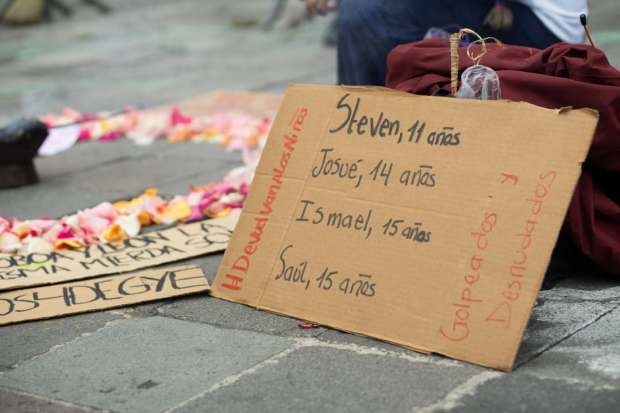 #DevuelvanALosNiños
Steven, 11 años
Josué, 14 años
Ismael, 15 años
Saúl, 15 años
Golpeados y
Desnudados
CON LA
MISMA MIERDA